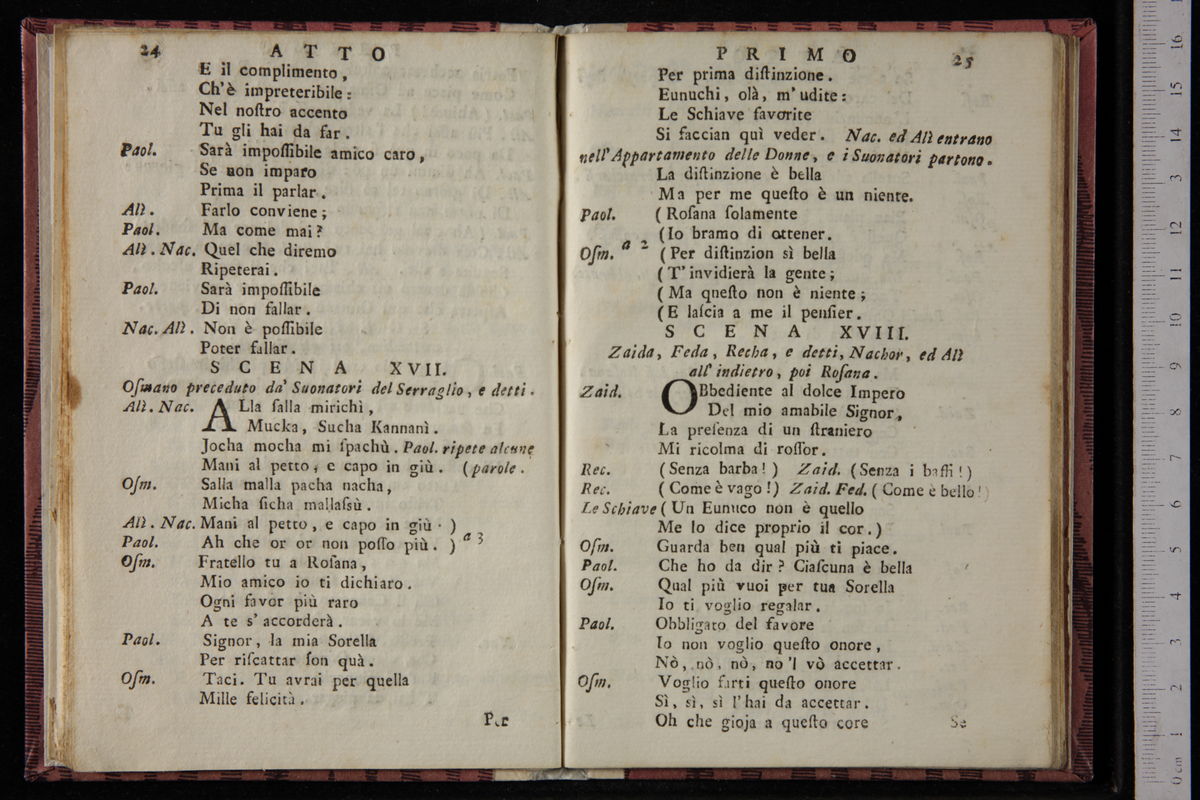 24 ATTO
E il complimento,
Ch'è impreteribile:
Nel noſtro accento
Tu gli hai da far.
Paol. Sarà impoſſibile amico caro,
Se non imparo
Prima il parlar.
Alì. Farlo conviene;
Paol. Ma come mai?
Alì. Nac. Quel che diremo
Ripeterai.
Paol. Sarà impoſſibile
Di non fallar.
Nac. Alì. Non è poſſibile
Poter fallar.
SCENA XVII.
Oſmano preceduto da' Suonatori del Serraglio, e detti.
Alì. Nac. ALla ſalla mirichì,
Mucka, Sucha Kannanì.
Jocha mocha mi ſpachù. Paol. ripete alcune
Mani al petto, e capo in giù. (parole.
Oſm. Salla malla pacha nacha,
Micha ſicha mallaſsù.
Alì. Nac. Mani al petto, e capo in giù. )
Paol. Ah che or or non poſſo più. ) a 3
Oſm. Fratello tu a Roſana,
Mio amico io ti dichiaro.
Ogni favor più raro
A te s'accorderà.
Paol. Signor, la mia Sorella
Per riſcattar ſon quà.
Oſm. Taci. Tu avrai per quella
Mille felicità.
Per
PRIMO 25
Per prima diſtinzione.
Eunuchi, olà, m'udite:
Le Schiave favorite
Si faccian quì veder. Nac. ed Alì entrano
nell'Appartamento delle Donne, e i Suonatori partono.
La diſtinzione è bella
Ma per me queſto è un niente.
Paol. (Roſana ſolamente
(Io bramo di ottener.
Oſm. a 2 (Per diſtinzion sì bella
(T'invidierà la gente;
(Ma qneſto non è niente;
(E laſcia a me il penſier.
SCENA XVIII.
Zaida, Feda, Recha, e detti, Nachor, ed Alì
all'indietro, poi Roſana.
Zaid. OBbediente al dolce Impero
Del mio amabile Signor,
La preſenza di un ſtraniero
Mi ricolma di roſſor.
Rec. (Senza barba!) Zaid. (Senza i baffi!)
Rec. (Come è vago!) Zaid. Fed. (Come è bello!)
Le Schiave (Un Eunuco non è quello
Me lo dice proprio il cor.)
Oſm. Guarda ben qual più ti piace.
Paol. Che ho da dir? Ciaſcuna è bella
Oſm. Qual più vuoi per tua Sorella
Io ti voglio regalar.
Paol. Obbligato del favore
Io non voglio queſto onore,
Nò, nò, nò, no'l vò accettar.
Oſm. Voglio farti queſto onore
Sì, sì, sì l'hai da accettar.
Oh che gioja a queſto core
Se
0 cm 1 2 3 4 5 6 7 8 9 10 11 12 13 14 15 16